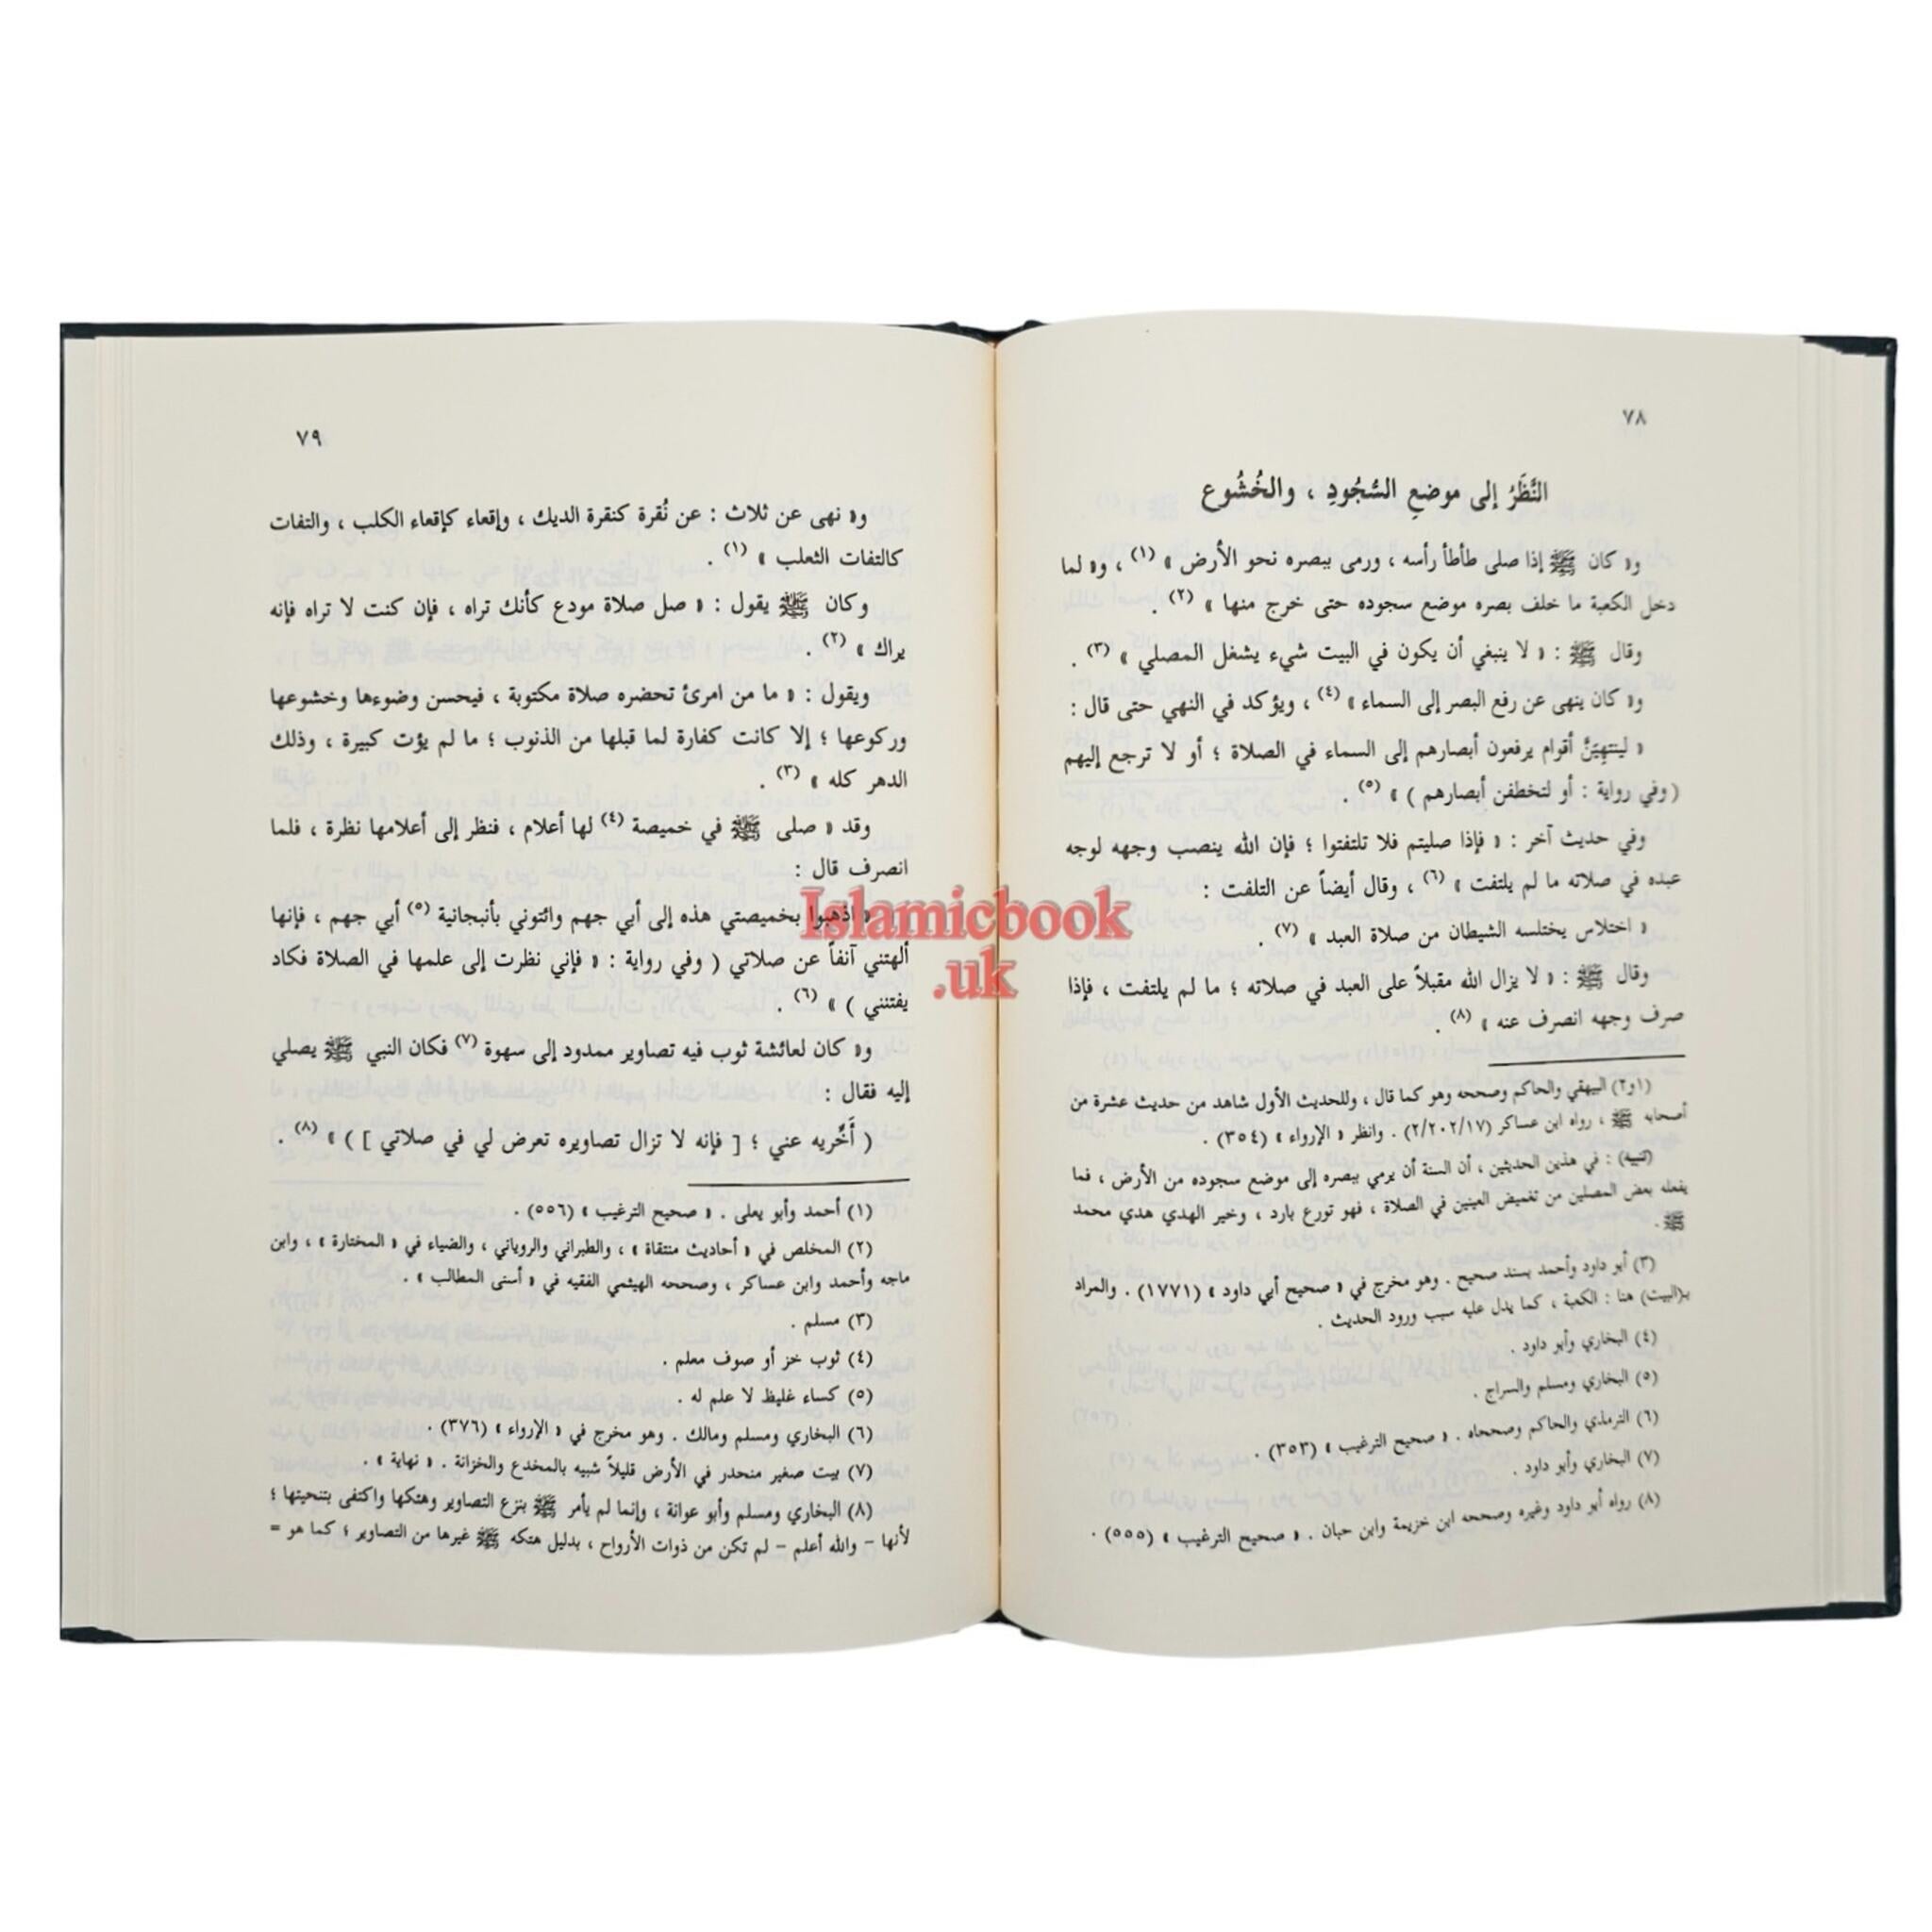 ٧٨
النَّظَرُ إلى موضعِ السُّجُودِ ، والخُشُوع
و« كان ﷺ إذا صلى طأطأ رأسه ، ورمى ببصره نحو الأرض » (١) ، و« لما
دخل الكعبة ما خلف بصره موضع سجوده حتى خرج منها » (٢) .
وقال ﷺ : « لا ينبغي أن يكون في البيت شيء يشغل المصلي » (٣) .
و« كان ينهى عن رفع البصر إلى السماء » (٤) ، ويؤكد في النهي حتى قال :
« لينتهِيَنَّ أقوام يرفعون أبصارهم إلى السماء في الصلاة ؛ أو لا ترجع إليهم
( وفي رواية : أو لتخطفن أبصارهم ) » (٥) .
وفي حديث آخر : « فإذا صليتم فلا تلتفتوا ؛ فإن الله ينصب وجهه لوجه
عبده في صلاته ما لم يلتفت » (٦) ، وقال أيضاً عن التلفت :
« اختلاس يختلسه الشيطان من صلاة العبد » (٧) .
وقال ﷺ : « لا يزال الله مقبلاً على العبد في صلاته ؛ ما لم يلتفت ، فإذا
صرف وجهه انصرف عنه » (٨) .
(١و٢) البيهقي والحاكم وصححه وهو كما قال ، وللحديث الأول شاهد من حديث عشرة من
أصحابه ﷺ ، رواه ابن عساكر (٢/٢٠٢/١٧) . وانظر « الإرواء » (٣٥٤) .
(تنبيه) : في هذين الحديثين ، أن السنة أن يرمي ببصره إلى موضع سجوده من الأرض ، فما
يفعله بعض المصلين من تغميض العينين في الصلاة ، فهو تورع بارد ، وخير الهدي هدي محمد
ﷺ .
(٣) أبو داود وأحمد بسند صحيح . وهو مخرج في « صحيح أبي داود » (١٧٧١) . والمراد
بـ(البيت) هنا : الكعبة ، كما يدل عليه سبب ورود الحديث .
(٤) البخاري وأبو داود .
(٥) البخاري ومسلم والسراج .
(٦) الترمذي والحاكم وصححاه . « صحيح الترغيب » (٣٥٣) .
(٧) البخاري وأبو داود .
(٨) رواه أبو داود وغيره وصححه ابن خزيمة وابن حبان . « صحيح الترغيب » (٥٥٥) .
٧٩
و« نهى عن ثلاث : عن نُقرة كنقرة الديك ، وإقعاء كإقعاء الكلب ، والتفات
كالتفات الثعلب » (١) .
وكان ﷺ يقول : « صل صلاة مودع كأنك تراه ، فإن كنت لا تراه فإنه
يراك » (٢) .
ويقول : « ما من امرئ تحضره صلاة مكتوبة ، فيحسن وضوءها وخشوعها
وركوعها ؛ إلا كانت كفارة لما قبلها من الذنوب ؛ ما لم يؤت كبيرة ، وذلك
الدهر كله » (٣) .
وقد « صلى ﷺ في خميصة (٤) لها أعلام ، فنظر إلى أعلامها نظرة ، فلما
انصرف قال :
« اذهبوا بخميصتي هذه إلى أبي جهم وائتوني بأنبجانية (٥) أبي جهم ، فإنها
ألهتني آنفاً عن صلاتي ( وفي رواية : « فإني نظرت إلى علمها في الصلاة فكاد
يفتنني ) » (٦) .
و« كان لعائشة ثوب فيه تصاوير ممدود إلى سهوة (٧) فكان النبي ﷺ يصلي
إليه فقال :
( أَخِّريه عني ؛ [ فإنه لا تزال تصاويره تعرض لي في صلاتي ] ) » (٨) .
(١) أحمد وأبو يعلى . « صحيح الترغيب » (٥٥٦) .
(٢) المخلص في « أحاديث منتقاة » ، والطبراني والروياني ، والضياء في « المختارة » ، وابن
ماجه وأحمد وابن عساكر ، وصححه الهيثمي الفقيه في « أسنى المطالب » .
(٣) مسلم .
(٤) ثوب خز أو صوف معلم .
(٥) كساء غليظ لا علم له .
(٦) البخاري ومسلم ومالك . وهو مخرج في « الإرواء » (٣٧٦) .
(٧) بيت صغير منحدر في الأرض قليلاً شبيه بالمخدع والخزانة . « نهاية » .
(٨) البخاري ومسلم وأبو عوانة ، وإنما لم يأمر ﷺ بنزع التصاوير وهتكها واكتفى بتنحيتها ؛
لأنها - والله أعلم - لم تكن من ذوات الأرواح ، بدليل هتكه ﷺ غيرها من التصاوير ؛ كما هو =
Islamicbook
.uk